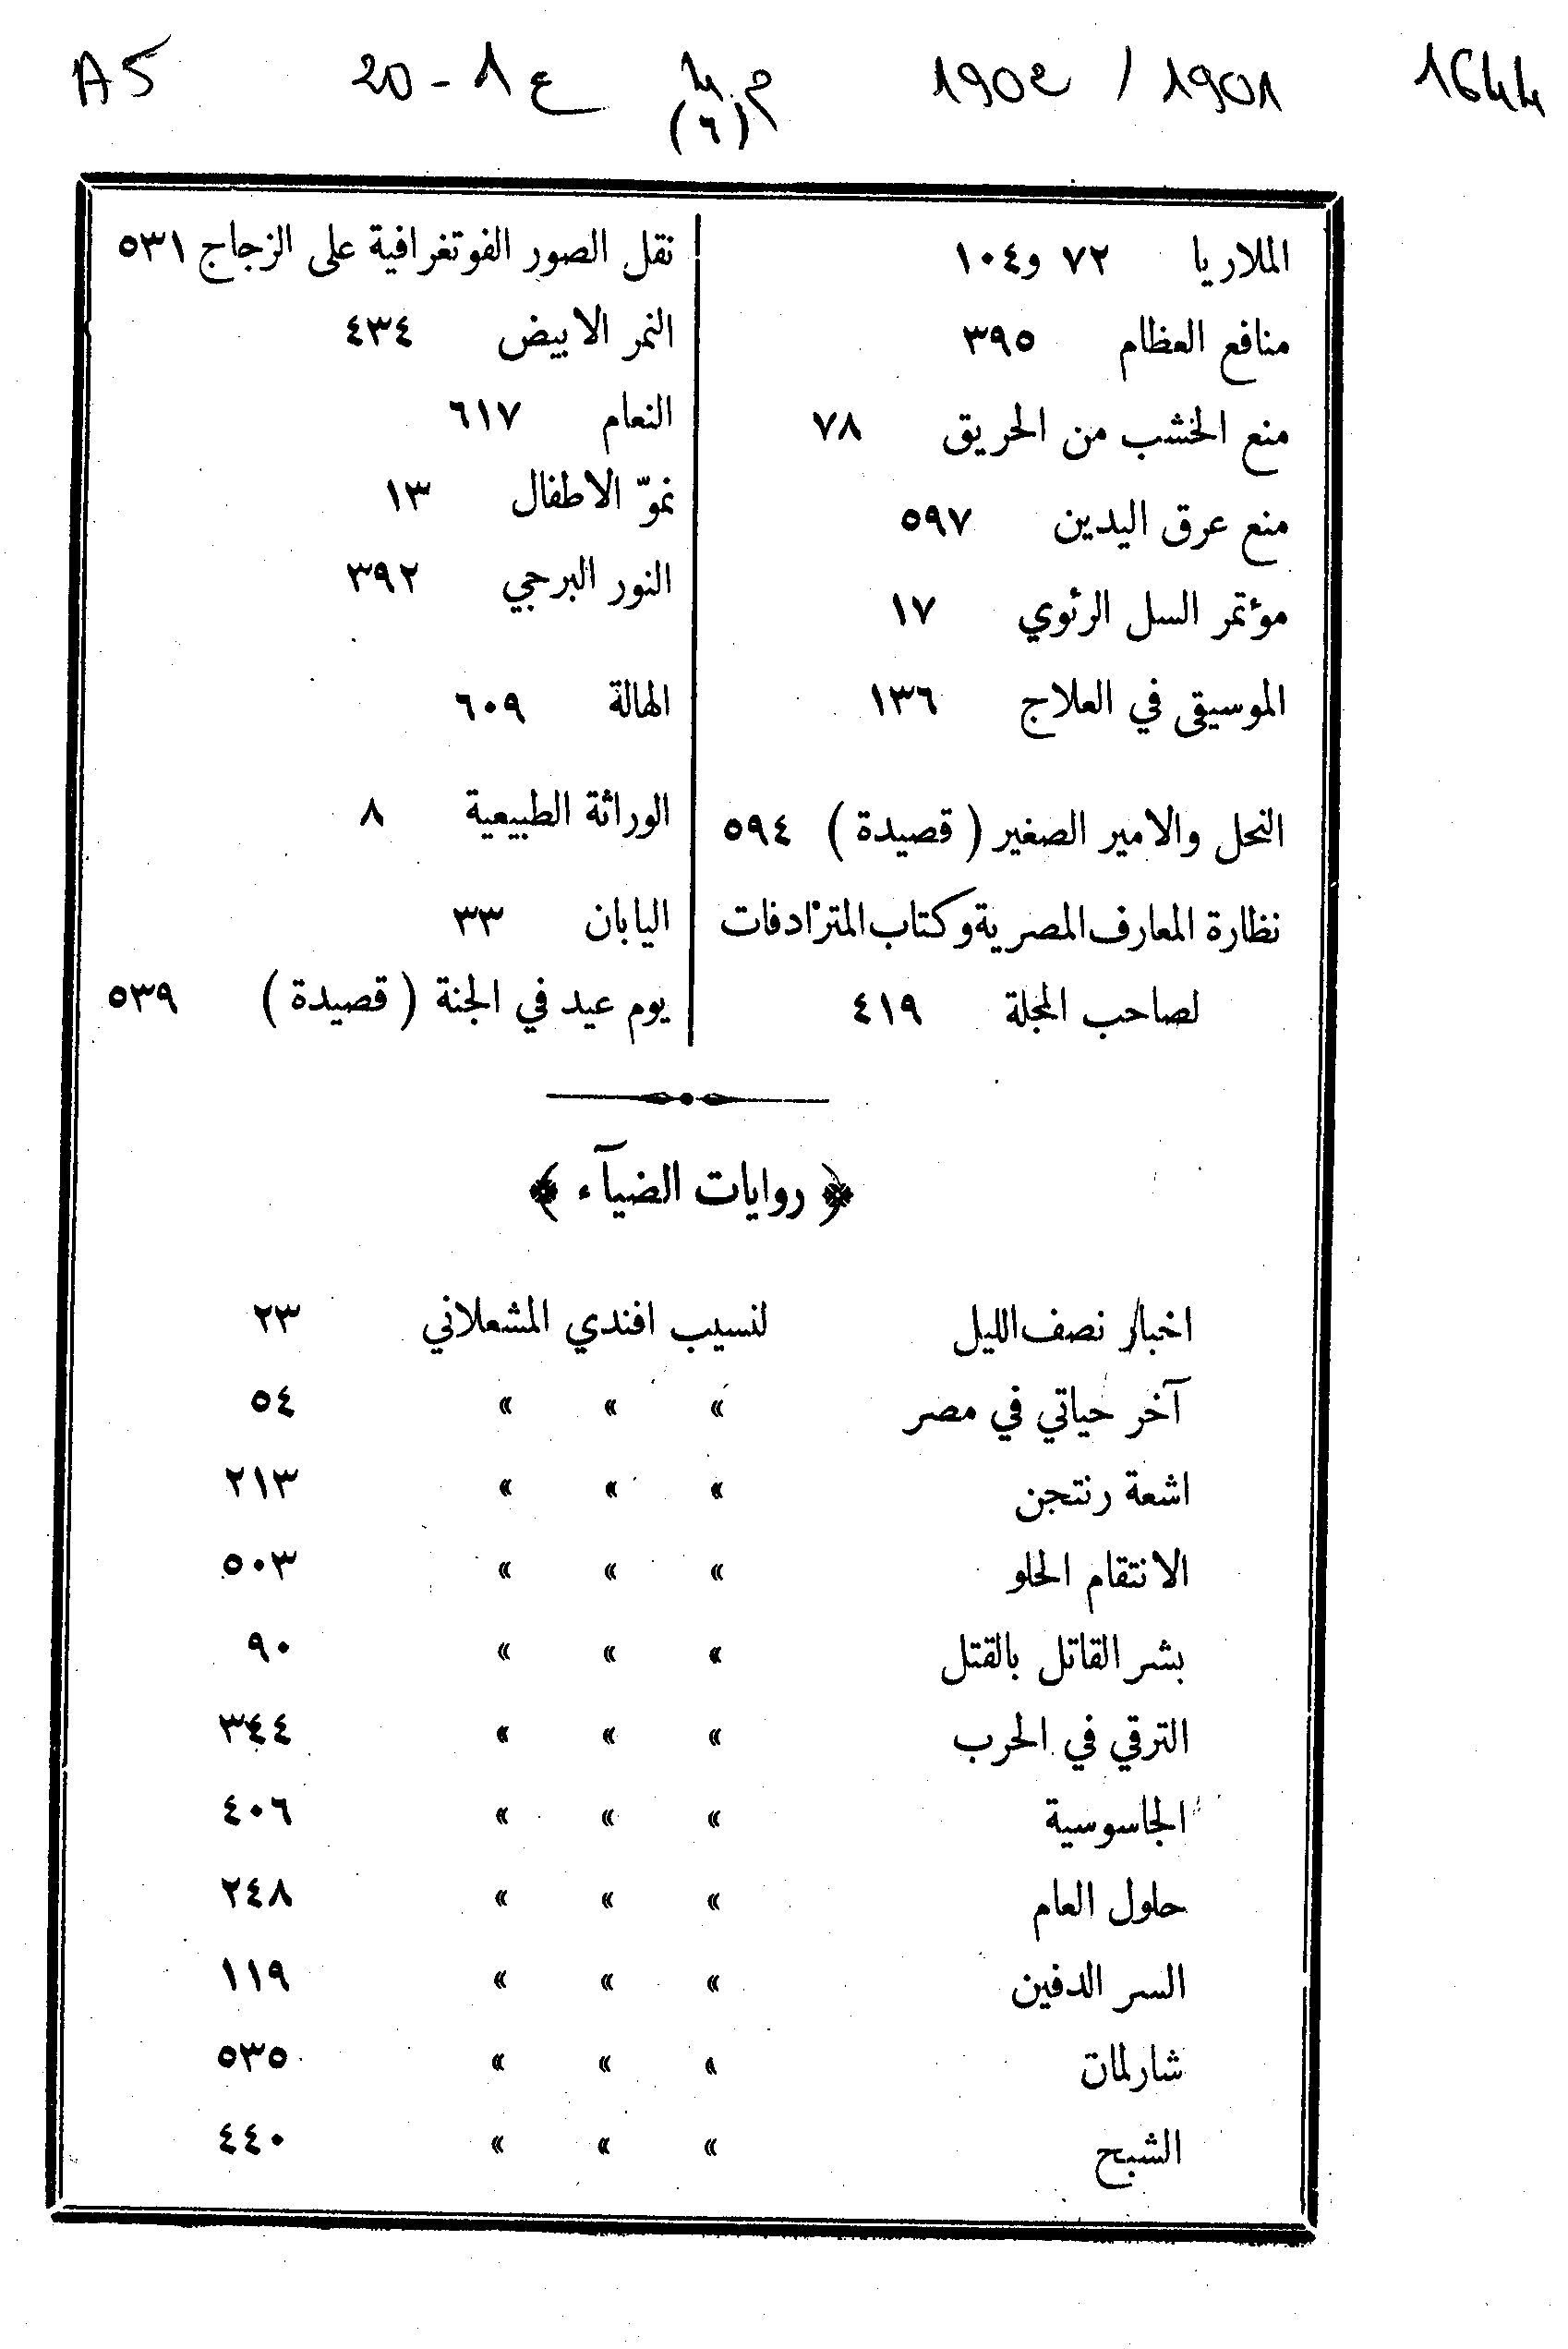 1644 1901 / 1902 م.4 ع 1 - 20 A5
(٦)
الملاريا ٧٢ و١٠٤
منافع العظام ٣٩٥
منع الخشب من الحريق ٧٨
منع عرق اليدين ٥٩٧
مؤتمر السل الرئوي ١٧
الموسيقى في العلاج ١٣٦
النحل والامير الصغير ( قصيدة ) ٥٩٤
نظارة المعارف المصرية وكتاب المترادفات
لصاحب المجلة ٤١٩
نقل الصور الفوتغرافية على الزجاج ٥٣١
النمر الابيض ٤٣٤
النعام ٦١٧
نموّ الاطفال ١٣
النور البرجي ٣٩٢
الهالة ٦٠٩
الوراثة الطبيعية ٨
اليابان ٣٣
يوم عيد في الجنة ( قصيدة ) ٥٣٩
﴿ روايات الضيآء ﴾
اخبار نصف الليل لنسيب افندي المشعلاني ٢٣
آخر حياتي في مصر » » » ٥٤
اشعة رنتجن » » » ٢١٣
الانتقام الحلو » » » ٥٠٣
بشر القاتل بالقتل » » » ٩٠
الترقي في الحرب » » » ٣٤٤
الجاسوسية » » » ٤٠٦
حلول العام » » » ٢٤٨
السر الدفين » » » ١١٩
شارلمان » » » ٥٣٥
الشبح » » » ٤٤٠